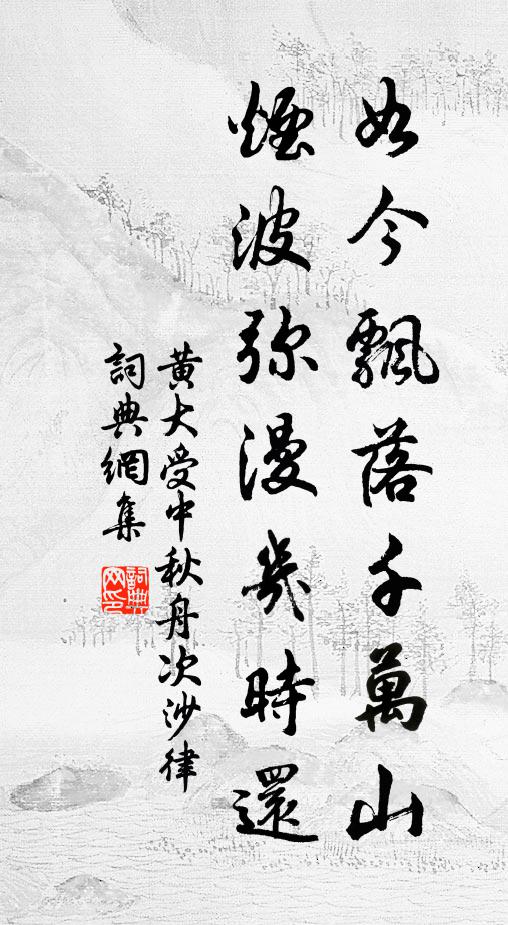 如今飄落千萬山
煙波弥漫幾時還
黃大受中秋舟次沙律
詞典網集
詞典網印